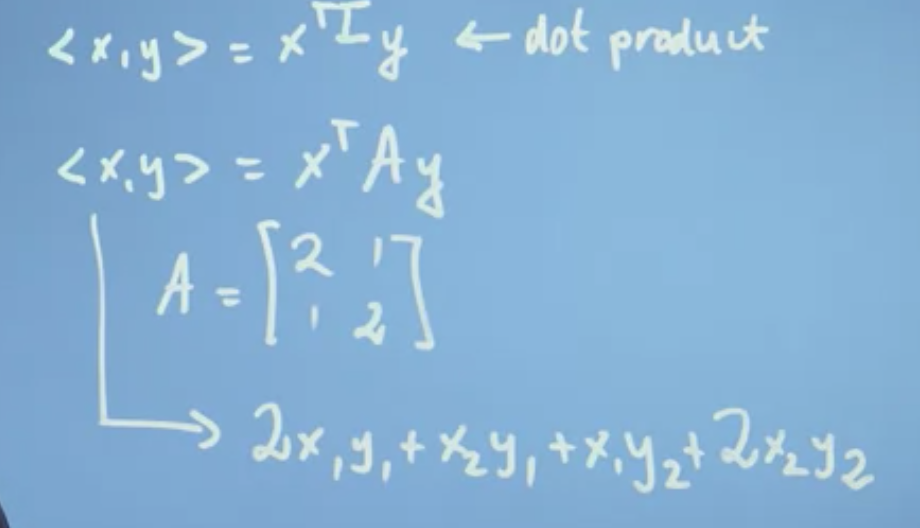 <x,y> = xᵀIy ← dot product
<x,y> = xᵀAy
A = [2 1
1 2]
→ 2x₁y₁ + x₂y₁ + x₁y₂ + 2x₂y₂